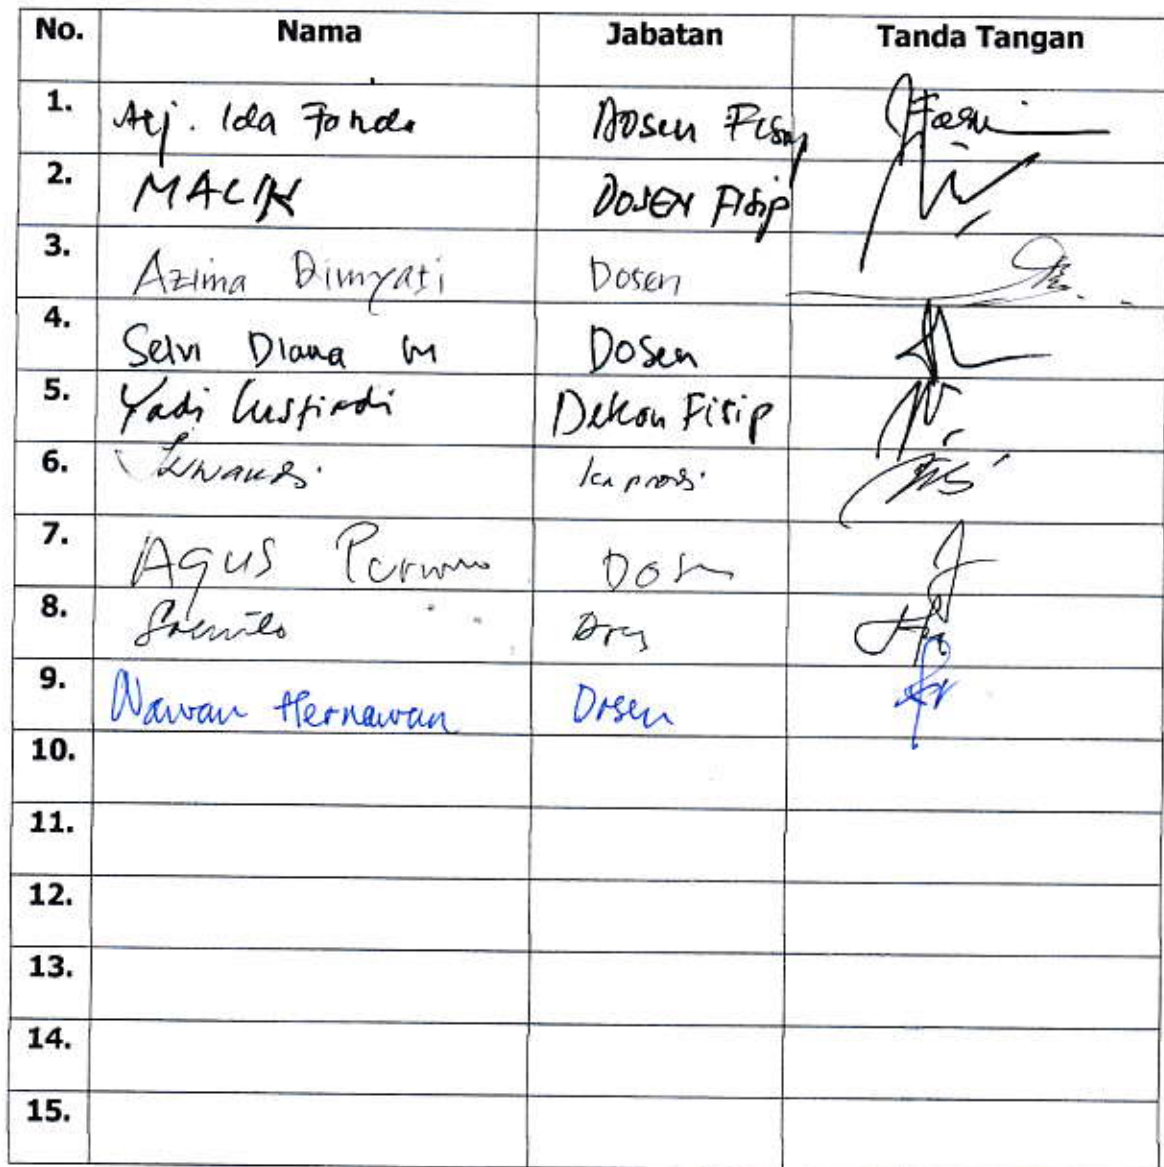 No. Nama Jabatan Tanda Tangan
1. Ida Dosen
2. MALIK DOSEN Fisip
3. Azima Dimyati Dosen
4. Selvi Diana M Dosen
5. Yadi Lustiadi Dekan Fisip
6. Kaprodi
7. Agus Purnomo Dosen
8.
9. Wawan Hernawan Dosen
10.
11.
12.
13.
14.
15.